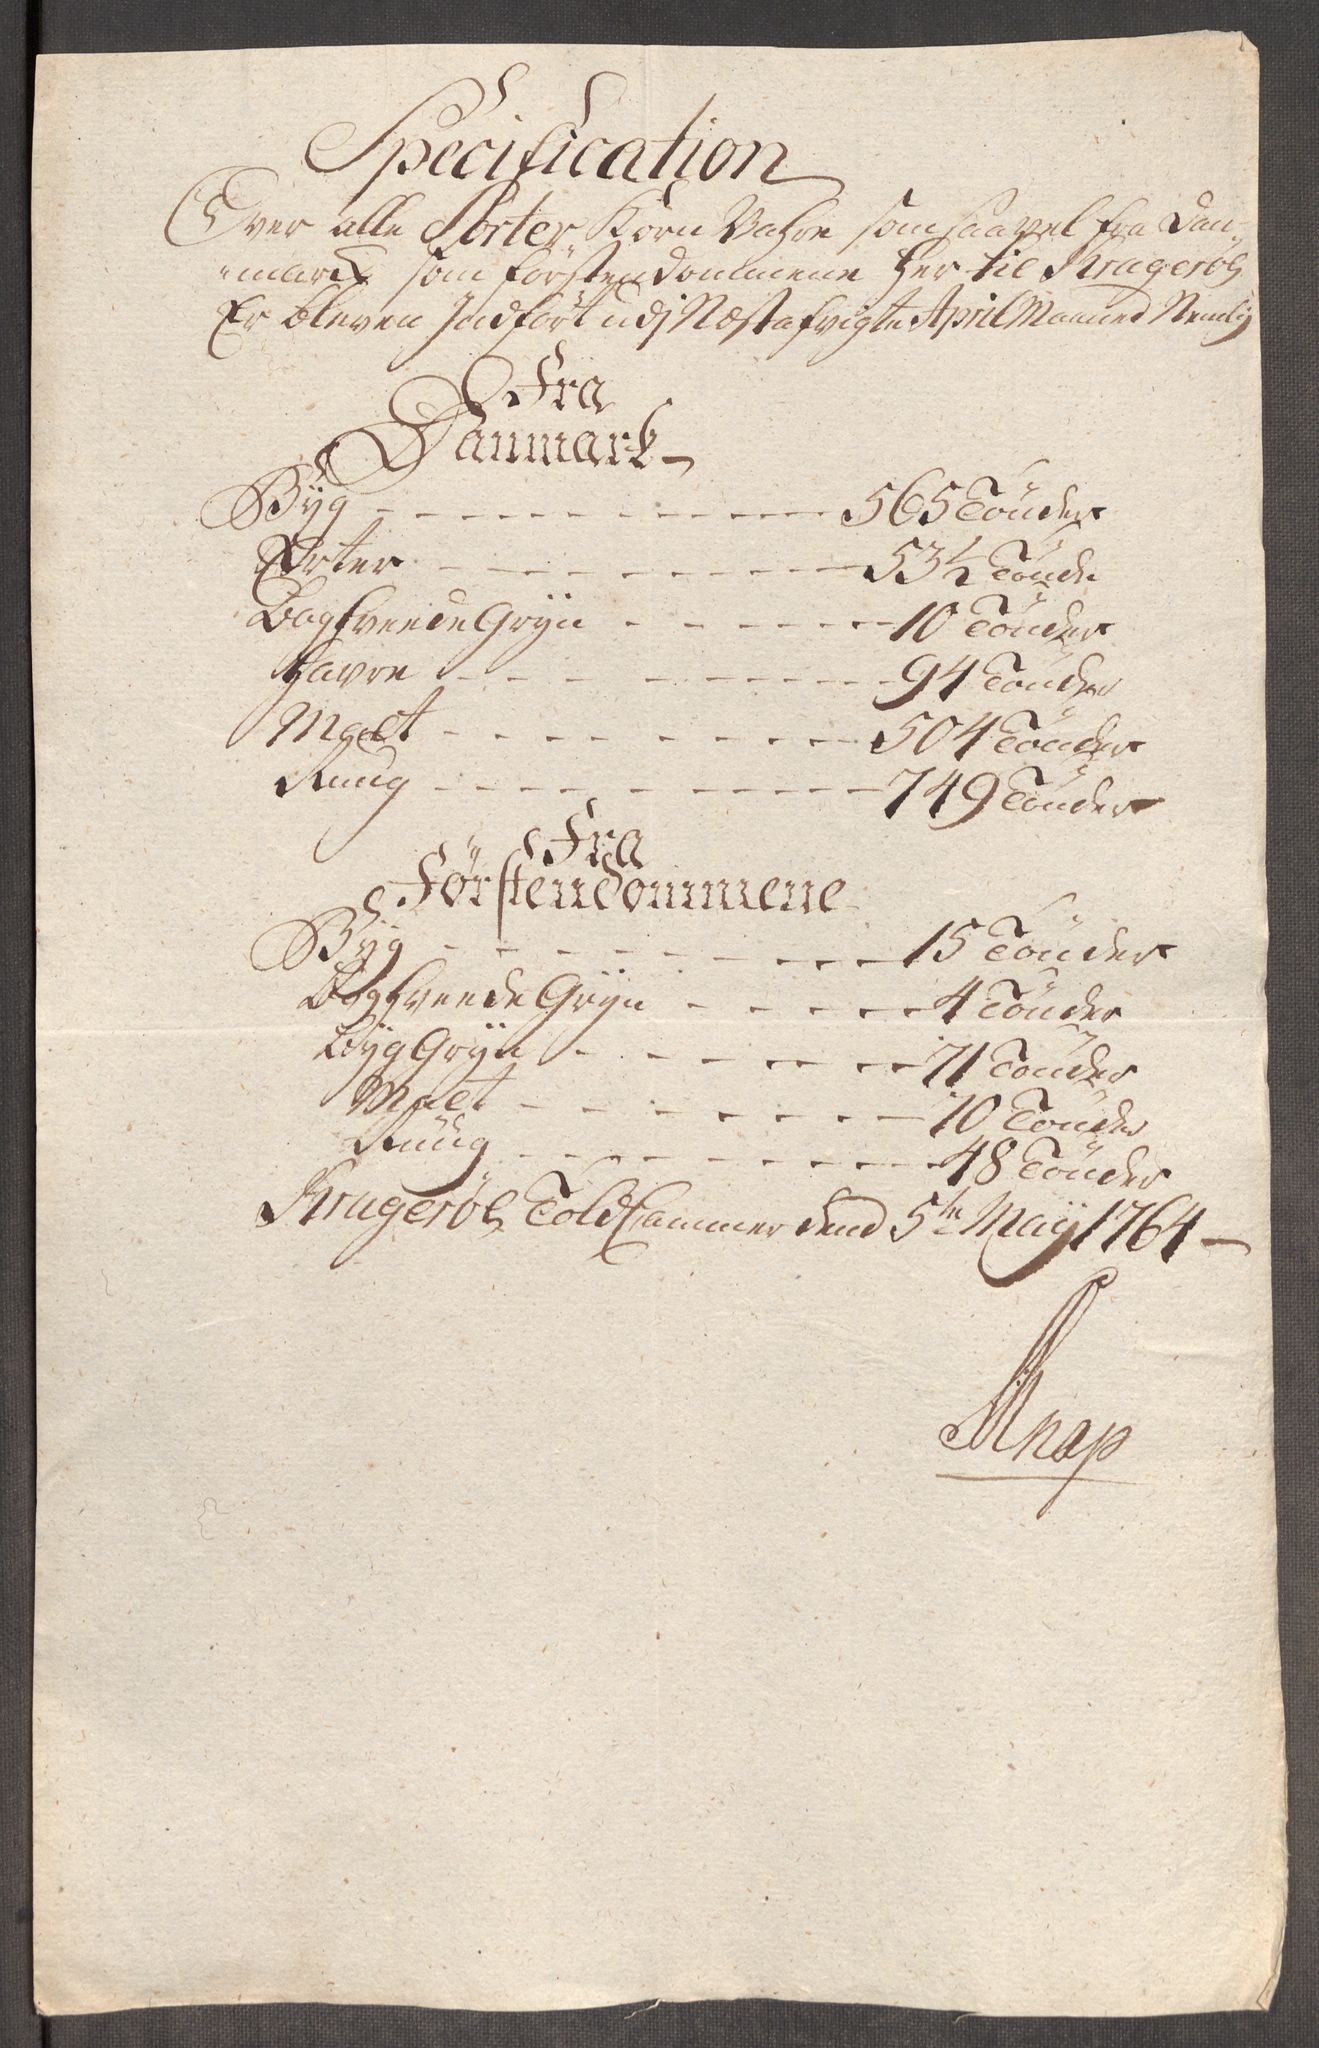 Specification
Over alle Sorter Korn Vahre som saavel fra Dan-
"marck som Förstendommene her til Krageröe
Er bleven Indfört udj Næst afvigte April Maaned Nemlig
Fra
Danmark
Byg - - - 565 Tönder
Erter - - - 53½ Tönde
BogHveedeGryn - - - 10 Tönder
Havre - - - 94 Tönder
Malt - - - 504 Tönder
Ruug - - - 749 Tönder
Fra
Förstendommene
Byg - - - 15 Tönder
BogHveedeGryn - - - 4 Tönder
BygGryn - - - 71 Tönder
Malt - - - 10 Tönder
Ruug - - - 48 Tönder
Krageröe Told Cammer dend 5te Maij 1764
Knap